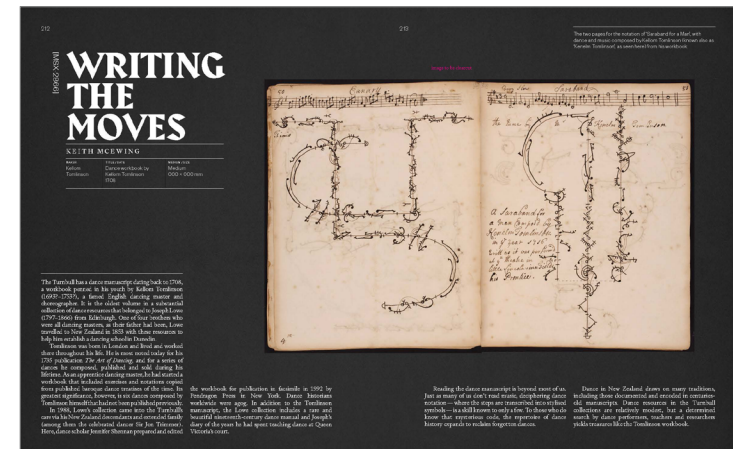 212
213
The two pages for the notation of 'Saraband for a Man', with
dance and music composed by Kellom Tomlinson (known also as
'Kenelm Tomlinson', as seen here) from his workbook
[MSX 2966]
WRITING
THE
MOVES
KEITH MCEWING
Kellom
Tomlinson
Dance workbook by
Kellom Tomlinson
1708
Medium
000 × 000 mm
The Turnbull has a dance manuscript dating back to 1708,
a workbook penned in his youth by Kellom Tomlinson
(1693?–1753?), a famed English dancing master and
choreographer. It is the oldest volume in a substantial
collection of dance resources that belonged to Joseph Lowe
(1797–1866) from Edinburgh. One of four brothers who
were all dancing masters, as their father had been, Lowe
travelled to New Zealand in 1853 with these resources to
help him establish a dancing school in Dunedin.
Tomlinson was born in London and lived and worked
there throughout his life. He is most noted today for his
1735 publication The Art of Dancing, and for a series of
dances he composed, published and sold during his
lifetime. As an apprentice dancing master, he had started a
workbook that included exercises and notations copied
from published baroque dance treatises of the time. Its
greatest significance, however, is six dances composed by
Tomlinson himself that had not been published previously.
In 1988, Lowe's collection came into the Turnbull's
care via his New Zealand descendants and extended family
(among them the celebrated dancer Sir Jon Trimmer).
Here, dance scholar Jennifer Shennan prepared and edited
the workbook for publication in facsimile in 1992 by
Pendragon Press in New York. Dance historians
worldwide were agog. In addition to the Tomlinson
manuscript, the Lowe collection includes a rare and
beautiful nineteenth-century dance manual and Joseph's
diary of the years he had spent teaching dance at Queen
Victoria's court.
Reading the dance manuscript is beyond most of us.
Just as many of us don't read music, deciphering dance
notation — where the steps are transcribed into stylised
symbols — is a skill known to only a few. To those who do
know that mysterious code, the repertoire of dance
history expands to reclaim forgotten dances.
Dance in New Zealand draws on many traditions,
including those documented and encoded in centuries-
old manuscripts. Dance resources in the Turnbull
collections are relatively modest, but a determined
search by dance performers, teachers and researchers
yields treasures like the Tomlinson workbook.
Saraband
A Saraband for
a man Compos'd by